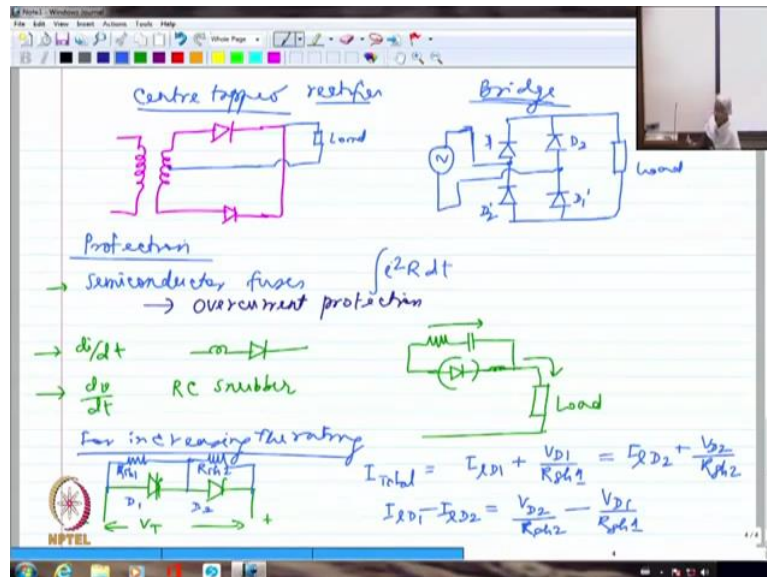 Note1 - Windows Journal
File Edit View Insert Actions Tools Help
Whole Page
B
Centre tapped rectifier
Bridge
Load
D2
D2'
D1'
Load
Protection
→ Semiconductor fuses ∫i²R dt
→ overcurrent protection
→ di/dt
→ dv/dt RC snubber
Load
For increasing the rating
Rsh1 Rsh2
D1 D2
VT +
I Total = IlD1 + VD1/Rsh1 = IlD2 + VD2/Rsh2
IlD1 - IlD2 = VD2/Rsh2 - VD1/Rsh1
NPTEL
4/4